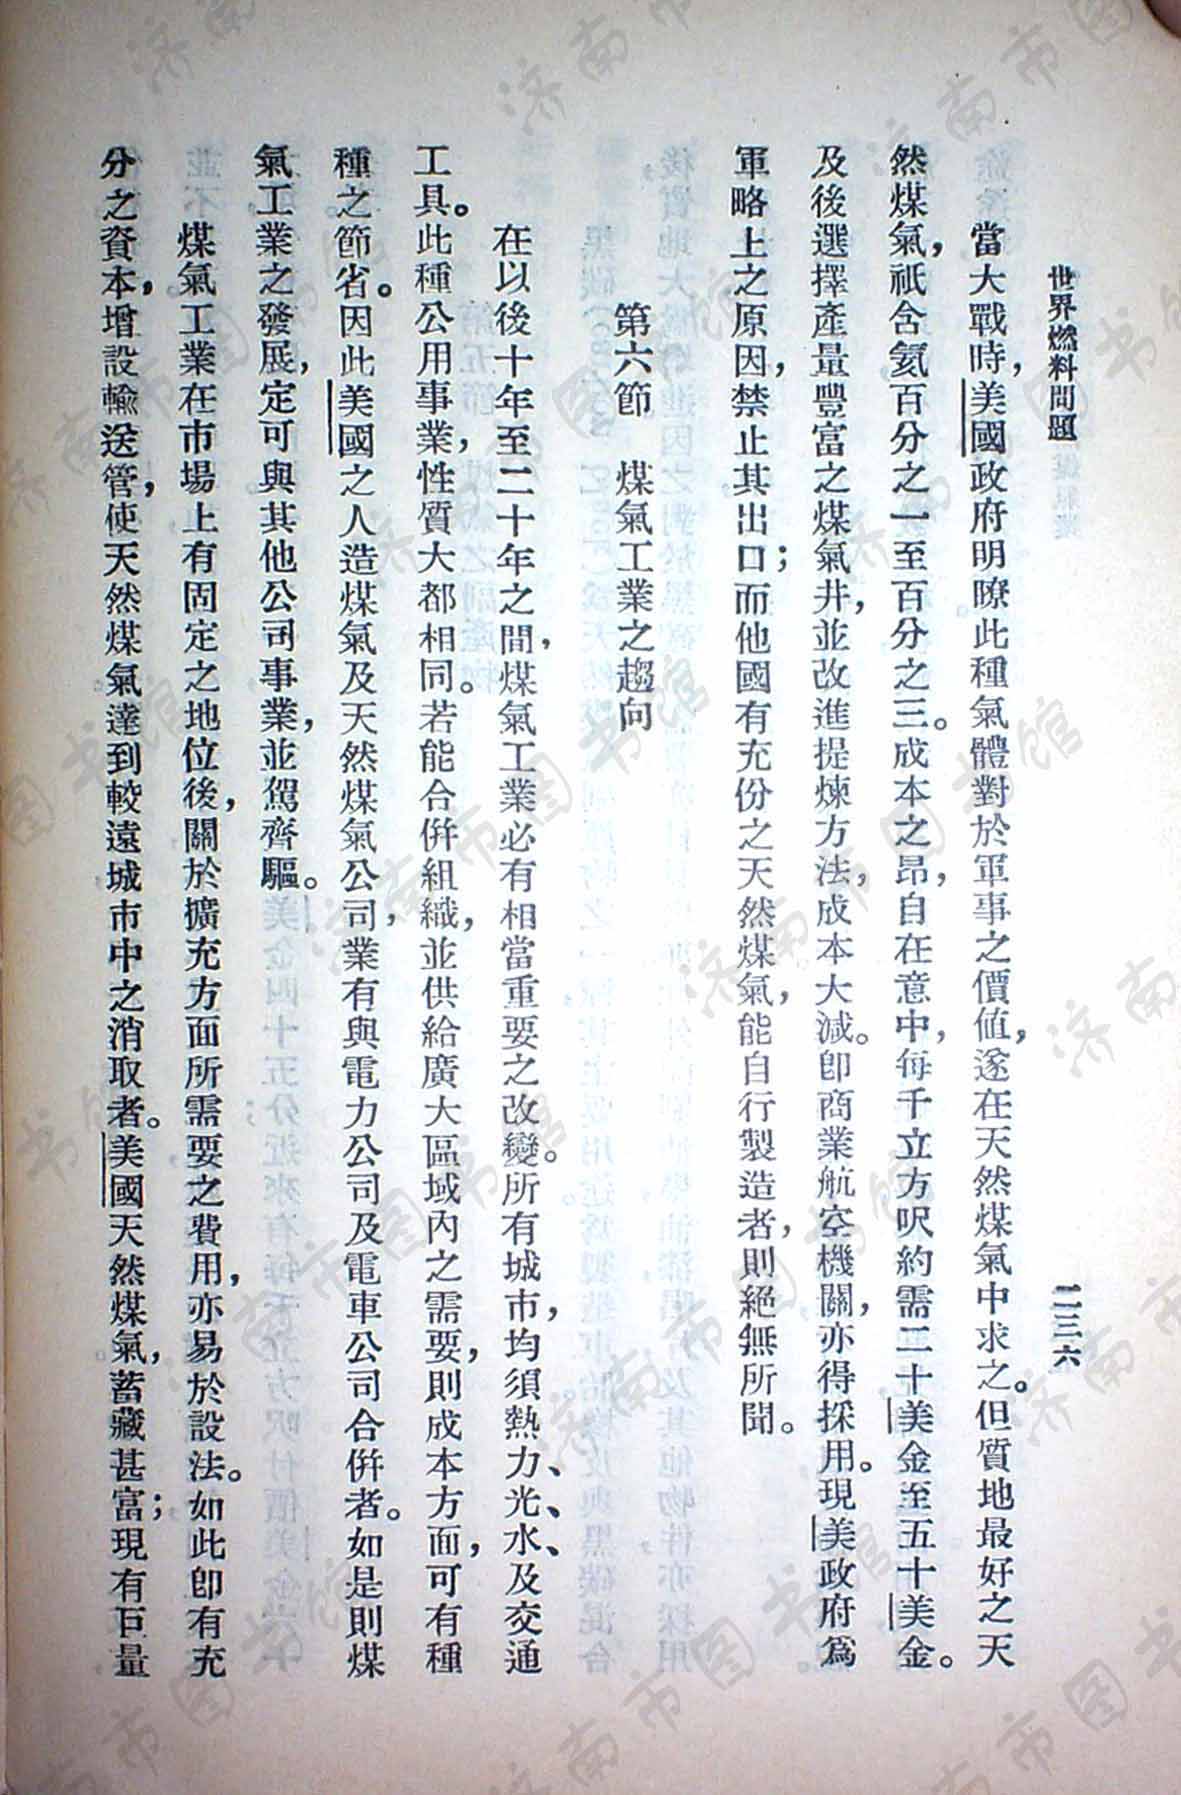 世界燃料問題
二三六
當大戰時，美國政府明瞭此種氣體對於軍事之價値，遂在天然煤氣中求之。但質地最好之天
然煤氣，祇含氦百分之一至百分之三。成本之昂，自在意中，每千立方呎約需二十美金至五十美金。
及後選擇產量豐富之煤氣井，並改進提煉方法，成本大減。卽商業航空機關，亦得採用。現美政府爲
軍略上之原因，禁止其出口；而他國有充份之天然煤氣，能自行製造者，則絕無所聞。
第六節　煤氣工業之趨向
在以後十年至二十年之間，煤氣工業必有相當重要之改變。所有城市，均須熱力、光、水、及交通
工具。此種公用事業，性質大都相同。若能合併組織，並供給廣大區域內之需要，則成本方面，可有種
種之節省。因此美國之人造煤氣及天然煤氣公司，業有與電力公司及電車公司合併者。如是則煤
氣工業之發展，定可與其他公司事業，並駕齊驅。
煤氣工業在市場上有固定之地位後，關於擴充方面所需要之費用，亦易於設法。如此卽有充
分之資本，增設輸送管，使天然煤氣達到較遠城市中之消取者。美國天然煤氣，蓄藏甚富；現有巨量
济南市图书馆